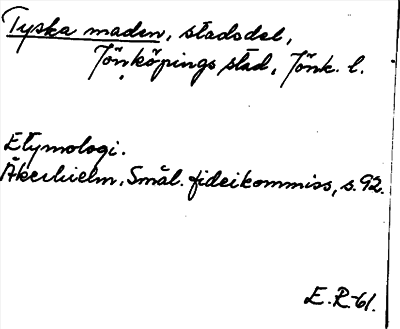 Tyska maden, stadsdel,
Jönköpings stad, Jönk. l.
Etymologi.
Åkerhielm, Smål. fideikommiss, s. 92.
E. R-61.